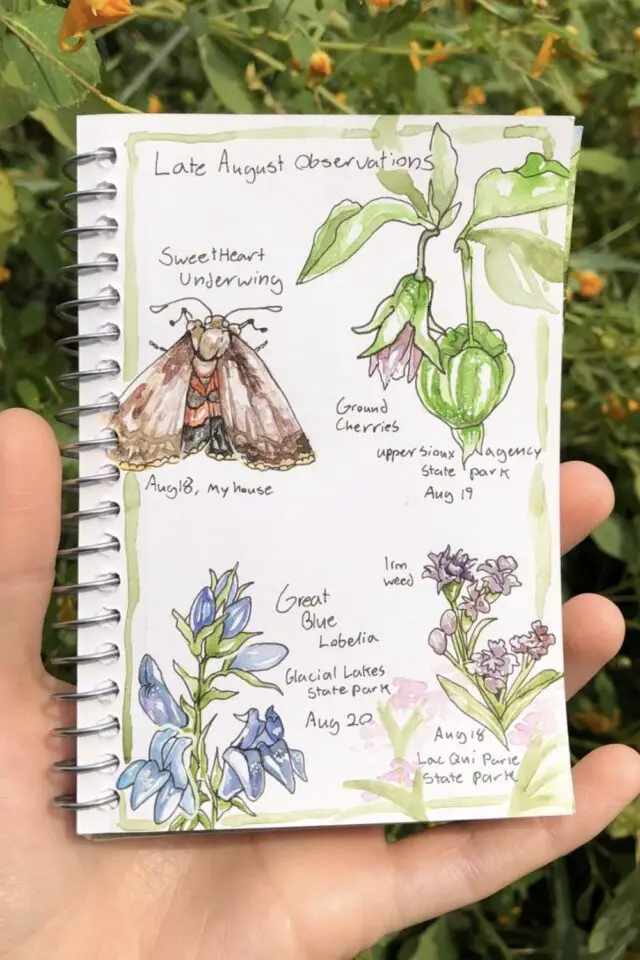 Late August Observations
SweetHeart
Underwing
Aug 18, my house
Ground
Cherries
upper Sioux agency
State park
Aug 19
Great
Blue
Lobelia
Glacial Lakes
State park
Aug 20
Iron
weed
Aug 18
Lac Qui Parle
State park